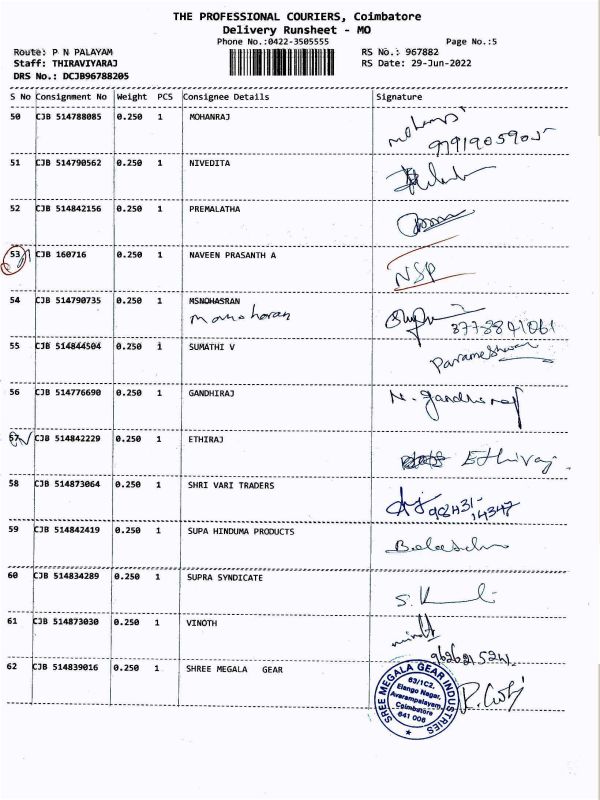 THE PROFESSIONAL COURIERS, Coimbatore
Delivery Runsheet - MO
Phone No.:0422-3505555
Page No.:5
Route: P N PALAYAM
RS No.: 967882
Staff: THIRAVIYARAJ
RS Date: 29-Jun-2022
DRS No.: DCJB96788205
S No Consignment No Weight PCS Consignee Details Signature
50 CJB 514788085 0.250 1 MOHANRAJ
9791905905
51 CJB 514790562 0.250 1 NIVEDITA
52 CJB 514842156 0.250 1 PREMALATHA
53 CJB 160716 0.250 1 NAVEEN PRASANTH A NSP
54 CJB 514790735 0.250 1 MSNOHASRAN
Manoharan
55 CJB 514844504 0.250 1 SUMATHI V Parameshwari
56 CJB 514776690 0.250 1 GANDHIRAJ N. gandhiraj
57 CJB 514842229 0.250 1 ETHIRAJ Ethiraj
58 CJB 514873064 0.250 1 SHRI VARI TRADERS
98431-
14347
59 CJB 514842419 0.250 1 SUPA HINDUMA PRODUCTS
60 CJB 514834289 0.250 1 SUPRA SYNDICATE
61 CJB 514873030 0.250 1 VINOTH
62 CJB 514839016 0.250 1 SHREE MEGALA GEAR
SREE MEGALA GEAR INDUSTRIES
63/1C2,
Elango Nagar,
Avarampalayam,
Coimbatore
641 006